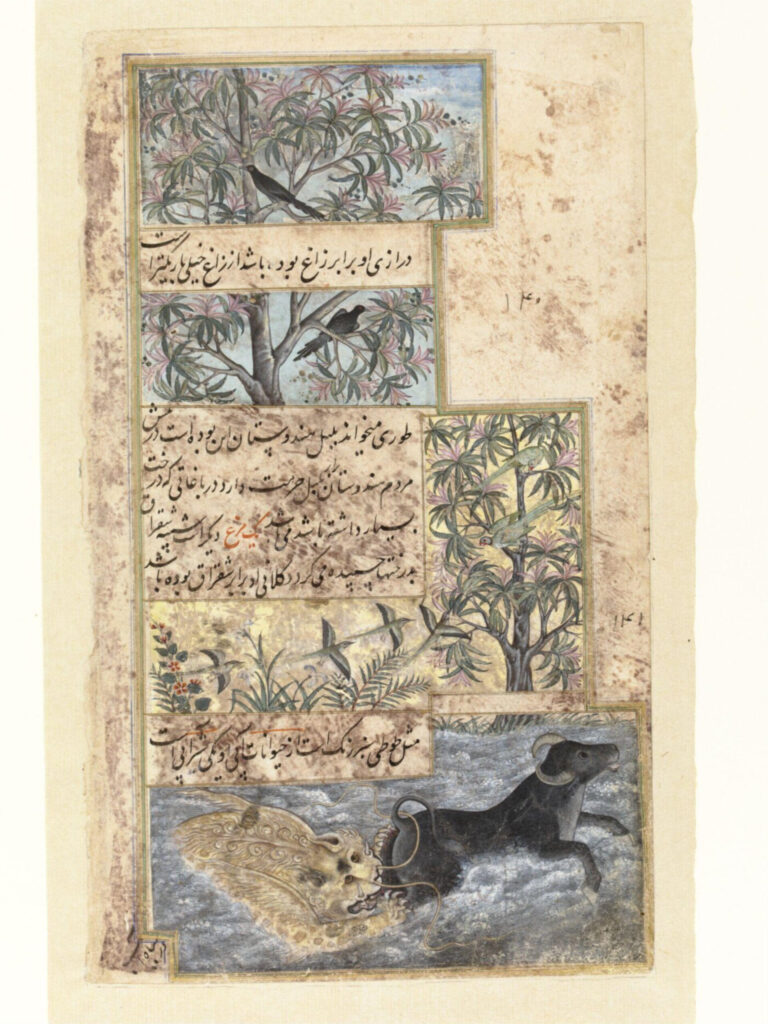 درازی او برابر زاغ بود، باشد از زاغ خیلی باریکتر است
۱۴۰
طوری میخواند بلبل هندوستان این بوده است در پیش
مردم هندوستان برابر بلبل حرمت دارد در باغاتی که درخت
بسیار داشته باشد می باشد یک مرغ دیگر است شبیه شقراق
بدرختها چسپیده می گردد کلانی او برابر شقراق بوده باشد
۱۴۱
مثل طوطی سبز رنگ است از حیوانات آبی او یکی شیر آبی است